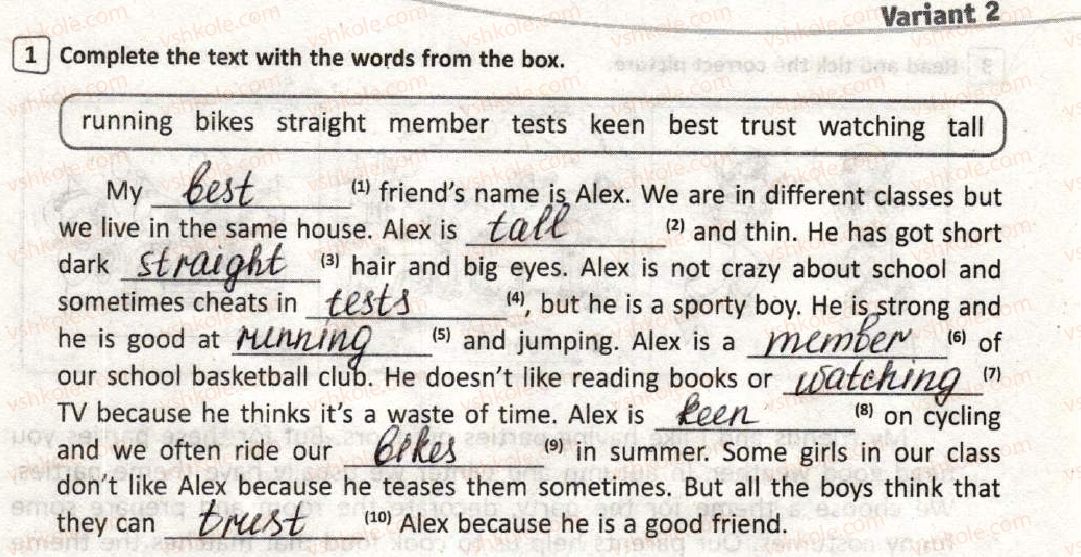 Variant 2
1 Complete the text with the words from the box.
running bikes straight member tests keen best trust watching tall
My best (1) friend's name is Alex. We are in different classes but
we live in the same house. Alex is tall (2) and thin. He has got short
dark straight (3) hair and big eyes. Alex is not crazy about school and
sometimes cheats in tests (4), but he is a sporty boy. He is strong and
he is good at running (5) and jumping. Alex is a member (6) of
our school basketball club. He doesn't like reading books or watching (7)
TV because he thinks it's a waste of time. Alex is keen (8) on cycling
and we often ride our bikes (9) in summer. Some girls in our class
don't like Alex because he teases them sometimes. But all the boys think that
they can trust (10) Alex because he is a good friend.